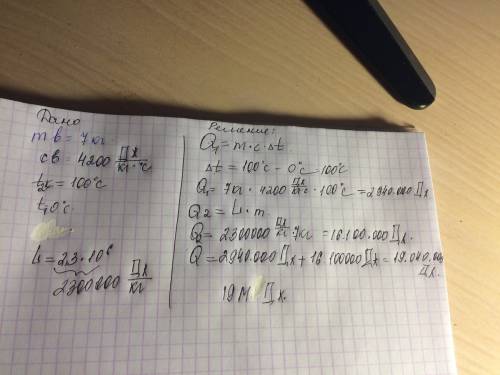 Дано
mв = 7кг.
cв = 4200 Дж/кг·°C
t2 = 100°C
t1 0°C.
L = 2,3·10⁶
2300000 Дж/кг
Решение:
Q1 = m·c·Δt
Δt = 100°C - 0°C = 100°C
Q1 = 7кг·4200 Дж/кг·°C·100°C = 2940.000 Дж
Q2 = L·m
Q2 = 2300000 Дж/кг·7кг = 16.100.000 Дж.
Q = 2940.000 Дж + 16100000 Дж = 19.040.000
Дж.
19 М Дж.